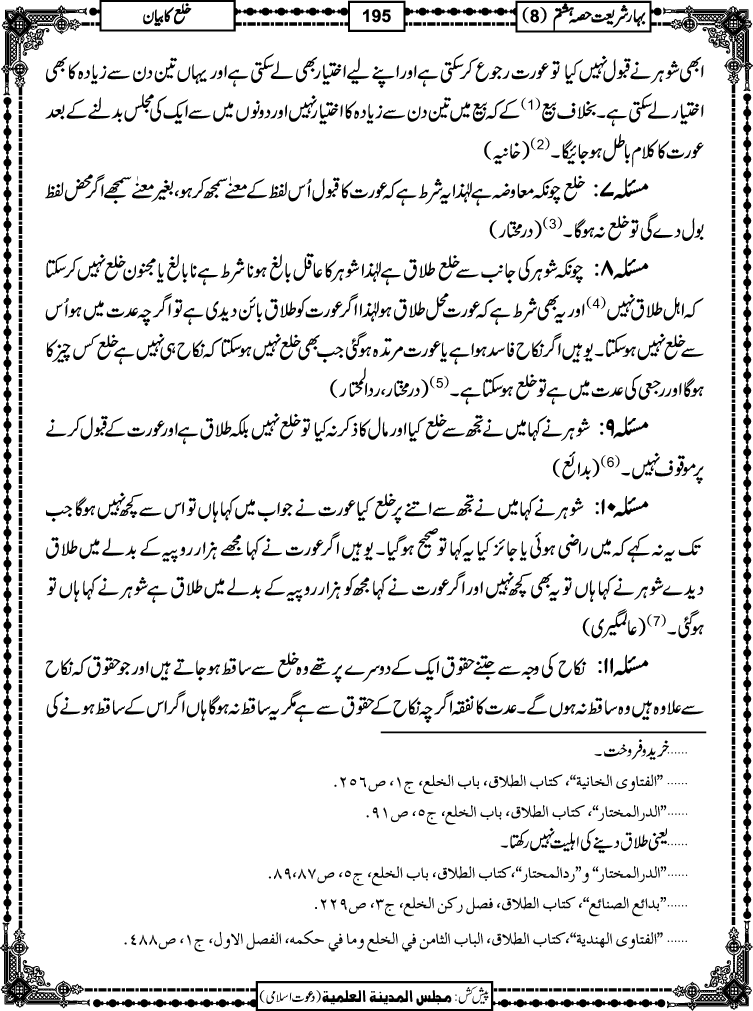 بہارشریعت حصہ ہشتم (8)
195
خلع کا بیان
ابھی شوہر نے قبول نہیں کیا تو عورت رجوع کرسکتی ہے اور اپنے لیے اختیار بھی لے سکتی ہے اور یہاں تین دن سے زیادہ کا بھی
اختیار لے سکتی ہے۔ بخلاف بیع (1) کے کہ بیع میں تین دن سے زیادہ کا اختیار نہیں اور دونوں میں سے ایک کی مجلس بدلنے کے بعد
عورت کا کلام باطل ہوجائیگا۔ (2) (خانیہ)
مسئلہ ۷: خلع چونکہ معاوضہ ہے لہٰذا یہ شرط ہے کہ عورت کا قبول اُس لفظ کے معنے سمجھ کر ہو، بغیر معنے سمجھے اگر محض لفظ
بول دے گی تو خلع نہ ہوگا۔ (3) (درمختار)
مسئلہ ۸: چونکہ شوہر کی جانب سے خلع طلاق ہے لہٰذا شوہر کا عاقل بالغ ہونا شرط ہے نابالغ یا مجنون خلع نہیں کرسکتا
کہ اہل طلاق نہیں (4) اور یہ بھی شرط ہے کہ عورت محل طلاق ہو لہٰذا اگر عورت کو طلاق بائن دیدی ہے تو اگرچہ عدت میں ہو اُس
سے خلع نہیں ہوسکتا۔ یوہیں اگر نکاح فاسد ہوا ہے یا عورت مرتدہ ہوگئی جب بھی خلع نہیں ہوسکتا کہ نکاح ہی نہیں ہے خلع کس چیز کا
ہوگا اور رجعی کی عدت میں ہے تو خلع ہوسکتا ہے۔ (5) (درمختار، ردالمحتار)
مسئلہ ۹: شوہر نے کہا میں نے تجھ سے خلع کیا اور مال کا ذکر نہ کیا تو خلع نہیں بلکہ طلاق ہے اور عورت کے قبول کرنے
پر موقوف نہیں۔ (6) (بدائع)
مسئلہ ۱۰: شوہر نے کہا میں نے تجھ سے اتنے پر خلع کیا عورت نے جواب میں کہا ہاں تو اس سے کچھ نہیں ہوگا جب
تک یہ نہ کہے کہ میں راضی ہوئی یا جائز کیا یہ کہا تو صحیح ہوگیا۔ یوہیں اگر عورت نے کہا مجھے ہزار روپیہ کے بدلے میں طلاق
دیدے شوہر نے کہا ہاں تو یہ بھی کچھ نہیں اور اگر عورت نے کہا مجھ کو ہزار روپیہ کے بدلے میں طلاق ہے شوہر نے کہا ہاں تو
ہوگئی۔ (7) (عالمگیری)
مسئلہ ۱۱: نکاح کی وجہ سے جتنے حقوق ایک کے دوسرے پر تھے وہ خلع سے ساقط ہوجاتے ہیں اور جو حقوق کہ نکاح
سے علاوہ ہیں وہ ساقط نہ ہوں گے۔ عدت کا نفقہ اگرچہ نکاح کے حقوق سے ہے مگر یہ ساقط نہ ہوگا ہاں اگر اس کے ساقط ہونے کی
......خرید و فروخت۔
...... ”الفتاوی الخانیة“، کتاب الطلاق، باب الخلع، ج۱، ص۲۵٦.
......”الدرالمختار“، کتاب الطلاق، باب الخلع، ج۵، ص۹۱.
......یعنی طلاق دینے کی اہلیت نہیں رکھتا۔
......”الدرالمختار“ و”ردالمحتار“،کتاب الطلاق، باب الخلع، ج۵، ص۸۷،۸۹.
......”بدائع الصنائع“، کتاب الطلاق، فصل رکن الخلع، ج۳، ص۲۲۹.
...... ”الفتاوی الهندیة“،کتاب الطلاق، الباب الثامن في الخلع وما في حکمه، الفصل الاول، ج۱، ص۴۸۸.
پیش کش: مجلس المدینة العلمیة (دعوت اسلامی)